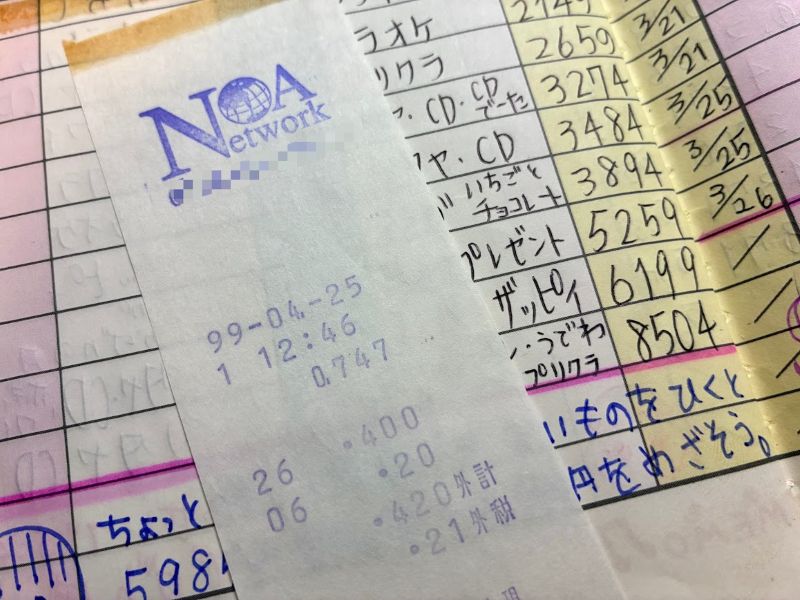 NOA
Network
99-04-25
1 12:46
0.747
・400
26 ・20
06 ・420外計
・21外税
ラオケ
リクラ 2659 3/21
ャ・CD・CDでーた 3274 3/21
ヤ・CD 3484 3/25
いちごとチョコレート 3894 3/25
プレゼント 5259 3/26
ザッピィ 6199
ン・うでわ
プリクラ 8504
いものをひくと
円をめざそう。
ちょっと
598